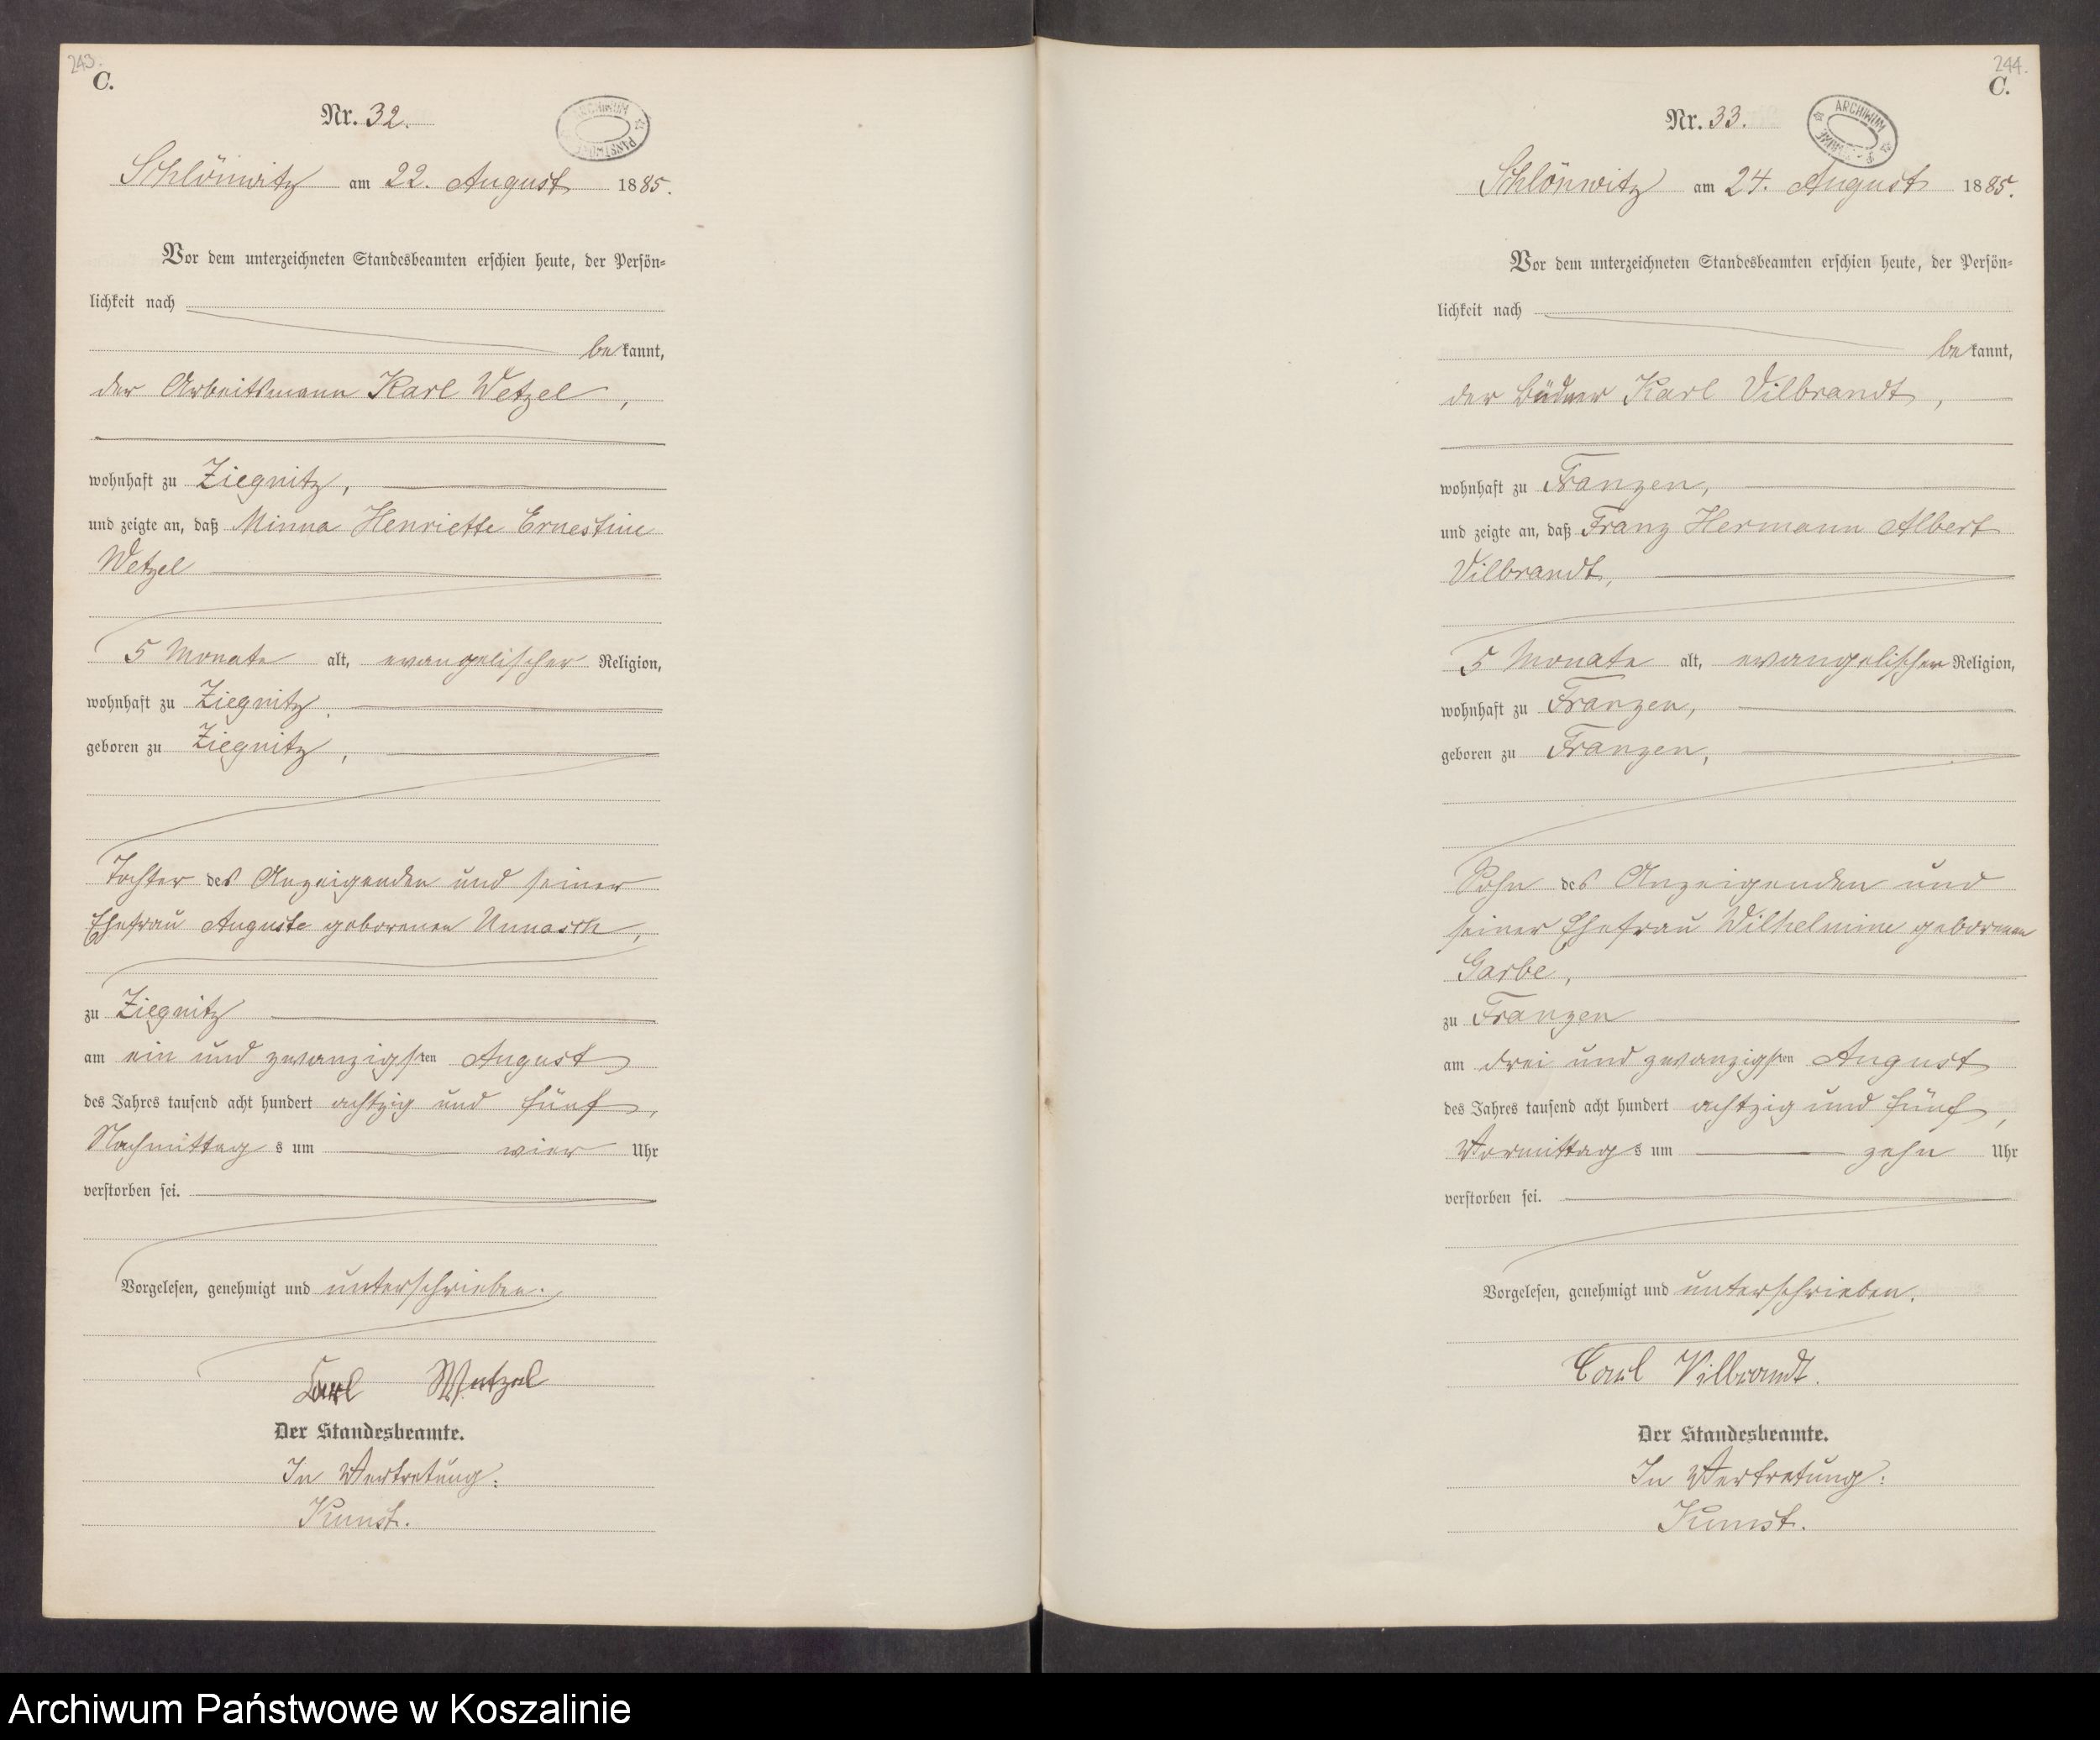 243.
C.
Nr. 32.
ARCHIWUM PAŃSTWOWE
Schlönwitz am 22. August 1885.
Vor dem unterzeichneten Standesbeamten erschien heute, der Persön-
lichkeit nach
bekannt,
der Arbeitsmann Karl Wetzel,
wohnhaft zu Ziegnitz,
und zeigte an, daß Minna Henriette Ernestine
Wetzel
5 Monate alt, evangelischer Religion,
wohnhaft zu Ziegnitz,
geboren zu Ziegnitz,
Tochter des Anzeigenden und seiner
Ehefrau Auguste geborenen Unnasch,
zu Ziegnitz
am ein und zwanzigsten August
des Jahres tausend acht hundert achtzig und fünf,
Nachmittags um vier Uhr
verstorben sei.
Vorgelesen, genehmigt und unterschrieben.
Carl Wetzel
Der Standesbeamte.
In Vertretung:
Kunst.
244.
C.
Nr. 33.
ARCHIWUM
Schlönwitz am 24. August 1885.
Vor dem unterzeichneten Standesbeamten erschien heute, der Persön-
lichkeit nach
bekannt,
der Büdner Karl Vilbrandt,
wohnhaft zu Franzen,
und zeigte an, daß Franz Hermann Albert
Vilbrandt,
5 Monate alt, evangelischer Religion,
wohnhaft zu Franzen,
geboren zu Franzen,
Sohn des Anzeigenden und
seiner Ehefrau Wilhelmine geborenen
Garbe,
zu Franzen
am drei und zwanzigsten August
des Jahres tausend acht hundert achtzig und fünf,
Vormittags um zehn Uhr
verstorben sei.
Vorgelesen, genehmigt und unterschrieben.
Carl Vilbrandt.
Der Standesbeamte.
In Vertretung:
Kunst.
Archiwum Państwowe w Koszalinie